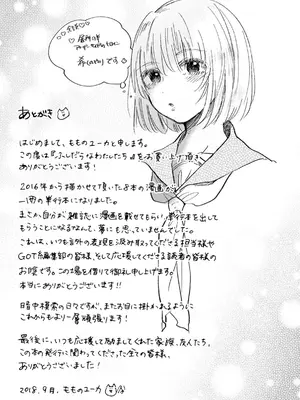 あとがき
はじめまして、もものユーカと申します。
この度は『ふしだらなわたしたち』をお買い上げ頂き
ありがとうございます!
2016年から描かせて頂いた8本の漫画が
一冊の単行本になりました。
まさか、自分が雑誌に漫画を載せてもらい、単行本を出して
もらうことになるなんて、夢にも思っていませんでした。
これは、いつも言外の表現を汲み取ってくださる担当様や
GOT編集部の皆様、そして応援してくださる読者の皆様の
お陰です。この場を借りて御礼申し上げます。
本当にありがとうございます!!
暗中模索の日々ですが、またお目に掛かれるように
これからもより一層頑張ります!
最後に、いつも応援して励ましてくれた家族、友人たち、
この本の発行に関わってくださった全ての皆様、
ありがとうございました!
2018.9月. もものユーカ